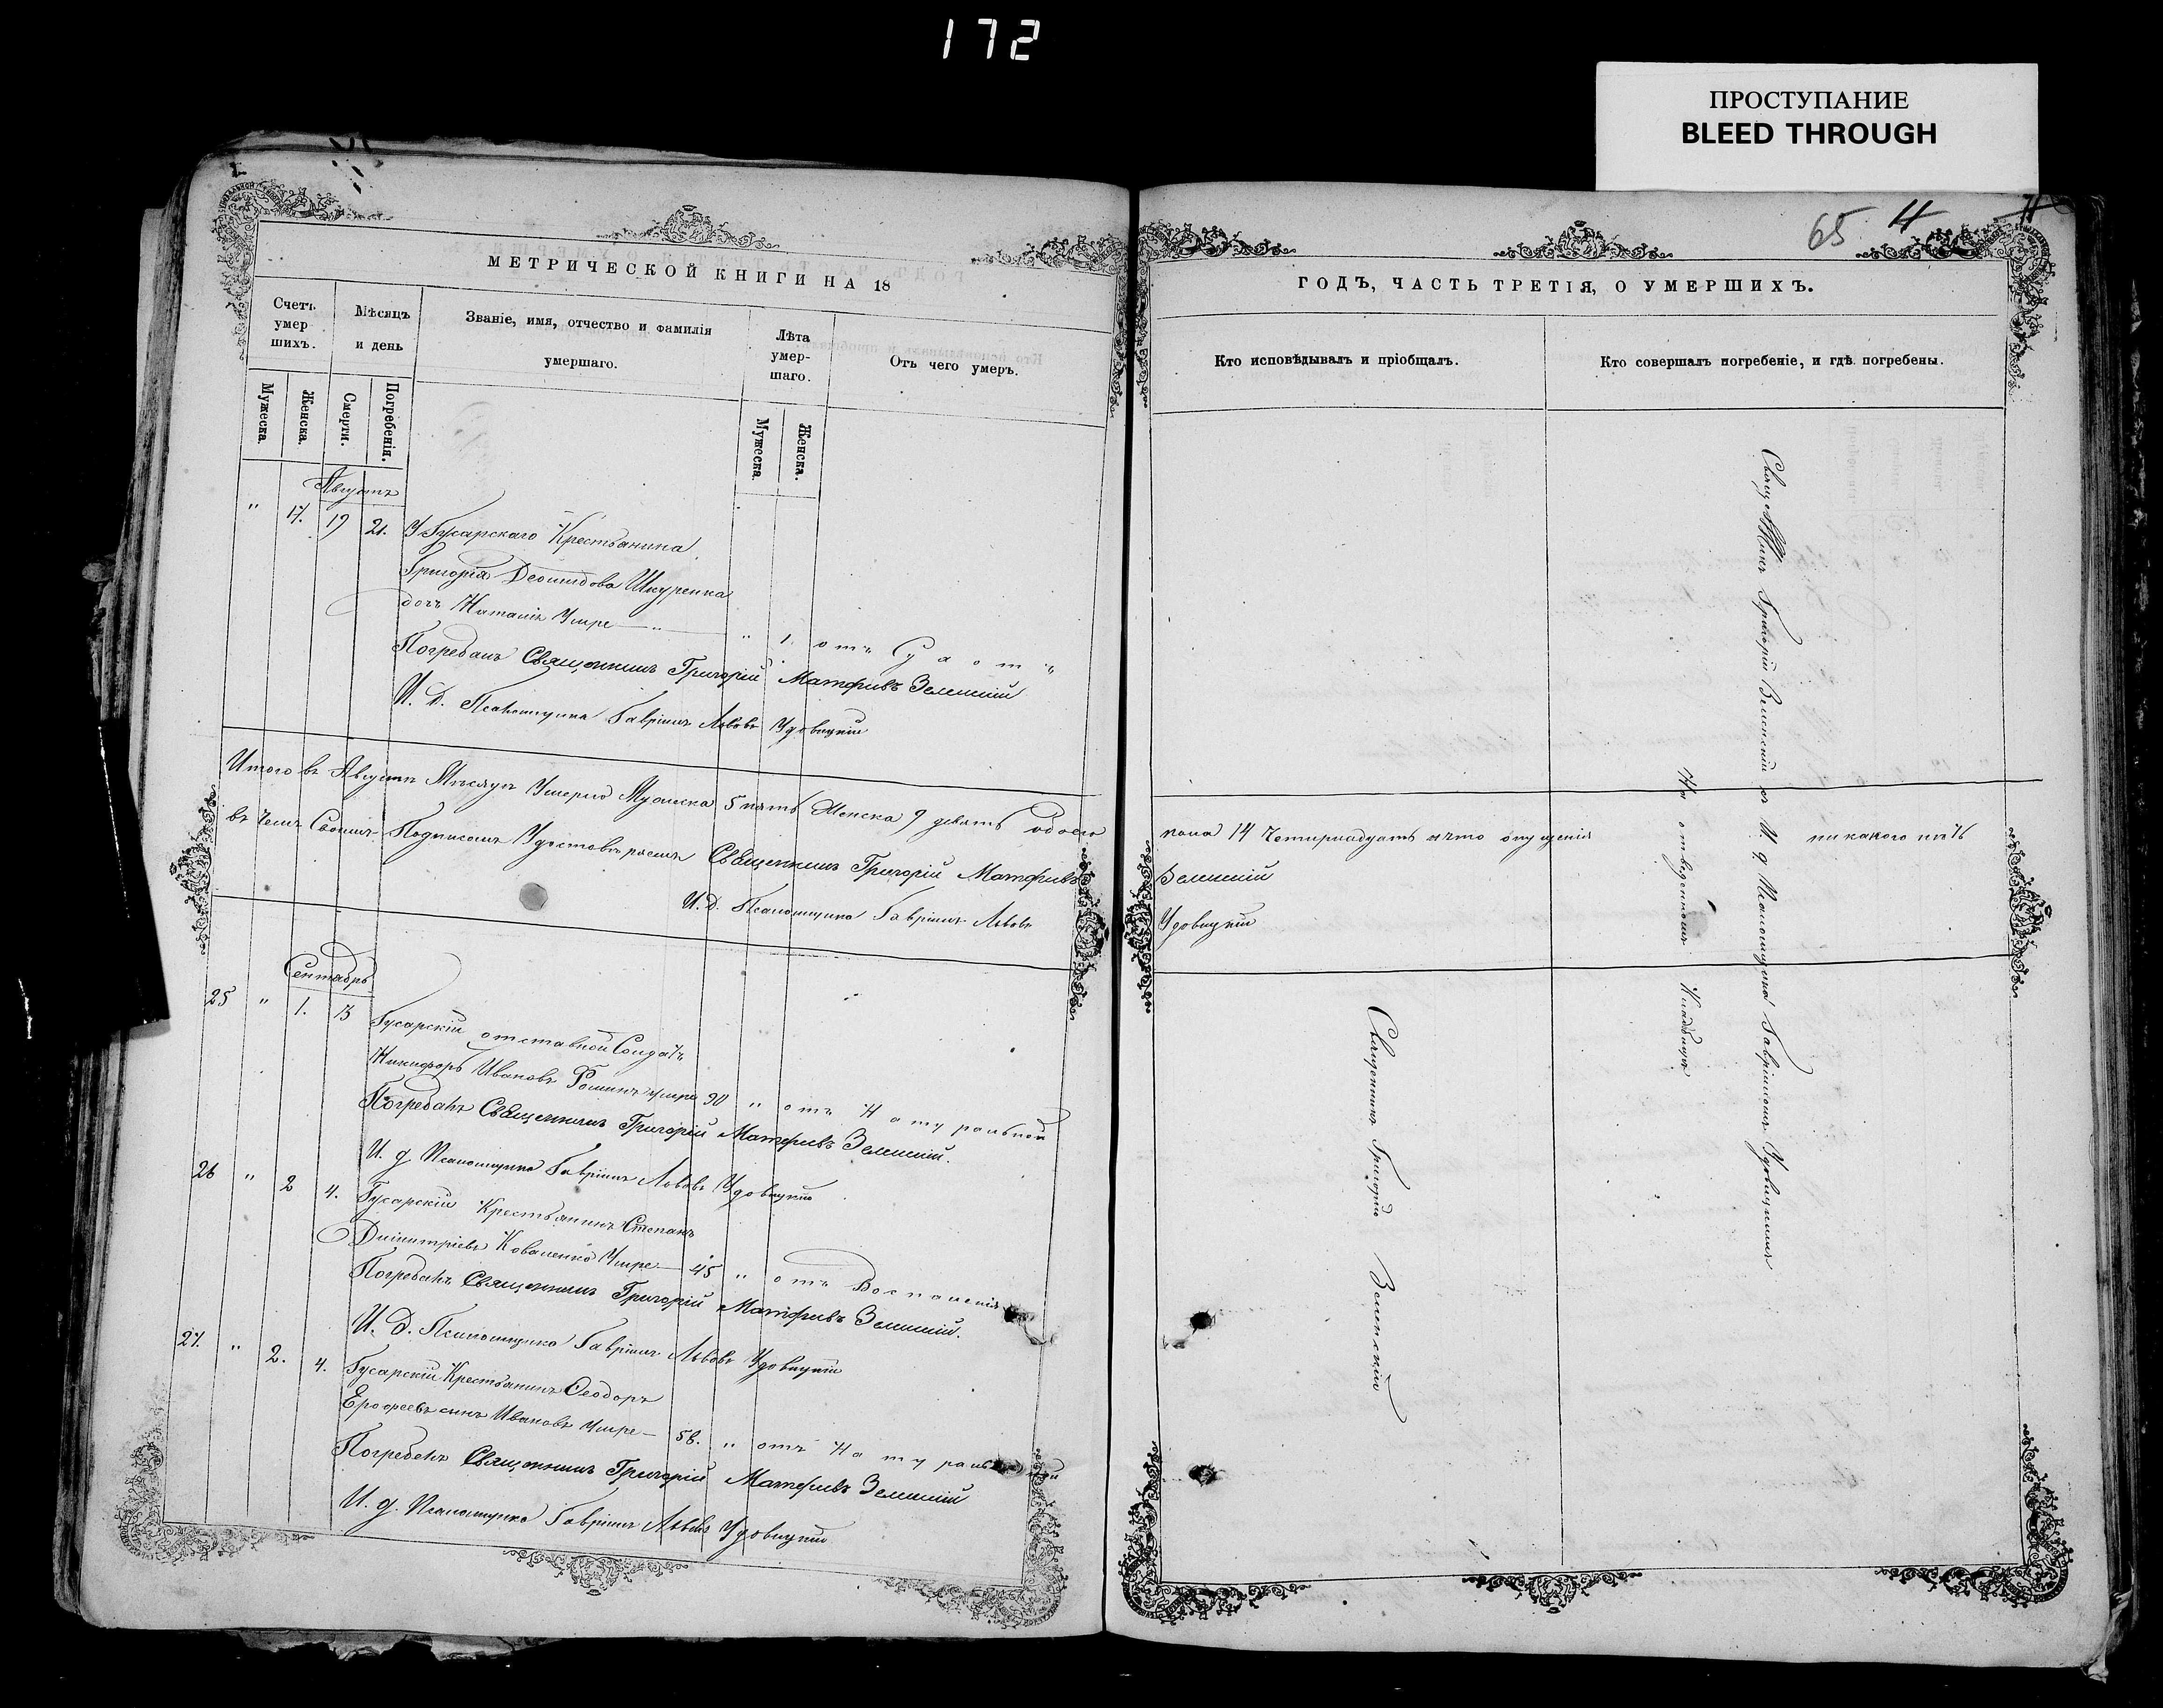 172
ПРОСТУПАНИЕ
BLEED THROUGH
65 4
МЕТРИЧЕСКОЙ КНИГИ НА 18
Счетъ умершихъ.
Мѣсяцъ и день
Званіе, имя, отчество и фамилія умершаго.
Лѣта умершаго.
Отъ чего умеръ.
Мужеска.
Женска.
Смерти.
Погребенія.
Мужеска
Женска.
Августъ
" 17. 19 21. У Гусарскаго Крестьянина
Григорія Леонидова Шкуренка
дочь Наталія Умре — " — " 1. отъ
Погребалъ Священникъ Григорій Матфиевъ Зеленскій
И. Д. Псаломщика Гавріилъ Львовъ Удовицкій
Итого въ Августѣ Мѣсяцѣ Умерло Мужеска 5 пять Женска 9 девять обоего
въ чемъ Своимъ Подписомъ Удостовѣряемъ Священникъ Григорій Матфиевъ
И. Д. Псаломщика Гавріилъ Львовъ
Сентябрь
25 " 1. 13 Гусарскій отставной Солдатъ
Никифоръ Ивановъ Фоминъ умре 90 " отъ Натуральной
Погребалъ Священникъ Григорій Матфиевъ Зеленскій.
И. д Псаломщика Гавріилъ Львовъ Удовицкій
26 " 2 4. Гусарскій Крестьянинъ Степанъ
Димитріевъ Коваленко Умре — 45 " отъ Воспаленія
Погребалъ Священникъ Григорій Матфиевъ Зеленскій.
И. Д. Псаломщика Гавріилъ Львовъ Удовицкій
27. " 2. 4. Гусарскій Крестьянинъ Ѳеодоръ
Ерофеевъ сынъ Ивановъ Умре — " отъ Натуральной
Погребенъ Священникъ Григорій Матфиевъ Зеленскій
И. д. Псаломщика Гавріилъ Львовъ Удовицкій
ГОДЪ, ЧАСТЬ ТРЕТІЯ, О УМЕРШИХЪ.
Кто исповѣдывалъ и пріобщалъ.
Кто совершалъ погребеніе, и гдѣ погребены.
пола 14 Четирнадцать и что опущенія никакого нѣтъ
Зеленскій
Удовицкій
Священникъ Григорій Зеленскій
Священникъ Григорій Зеленскій съ И. д Псаломщика Гавріиломъ Удовицкимъ
На отведенномъ Кладбищѣ